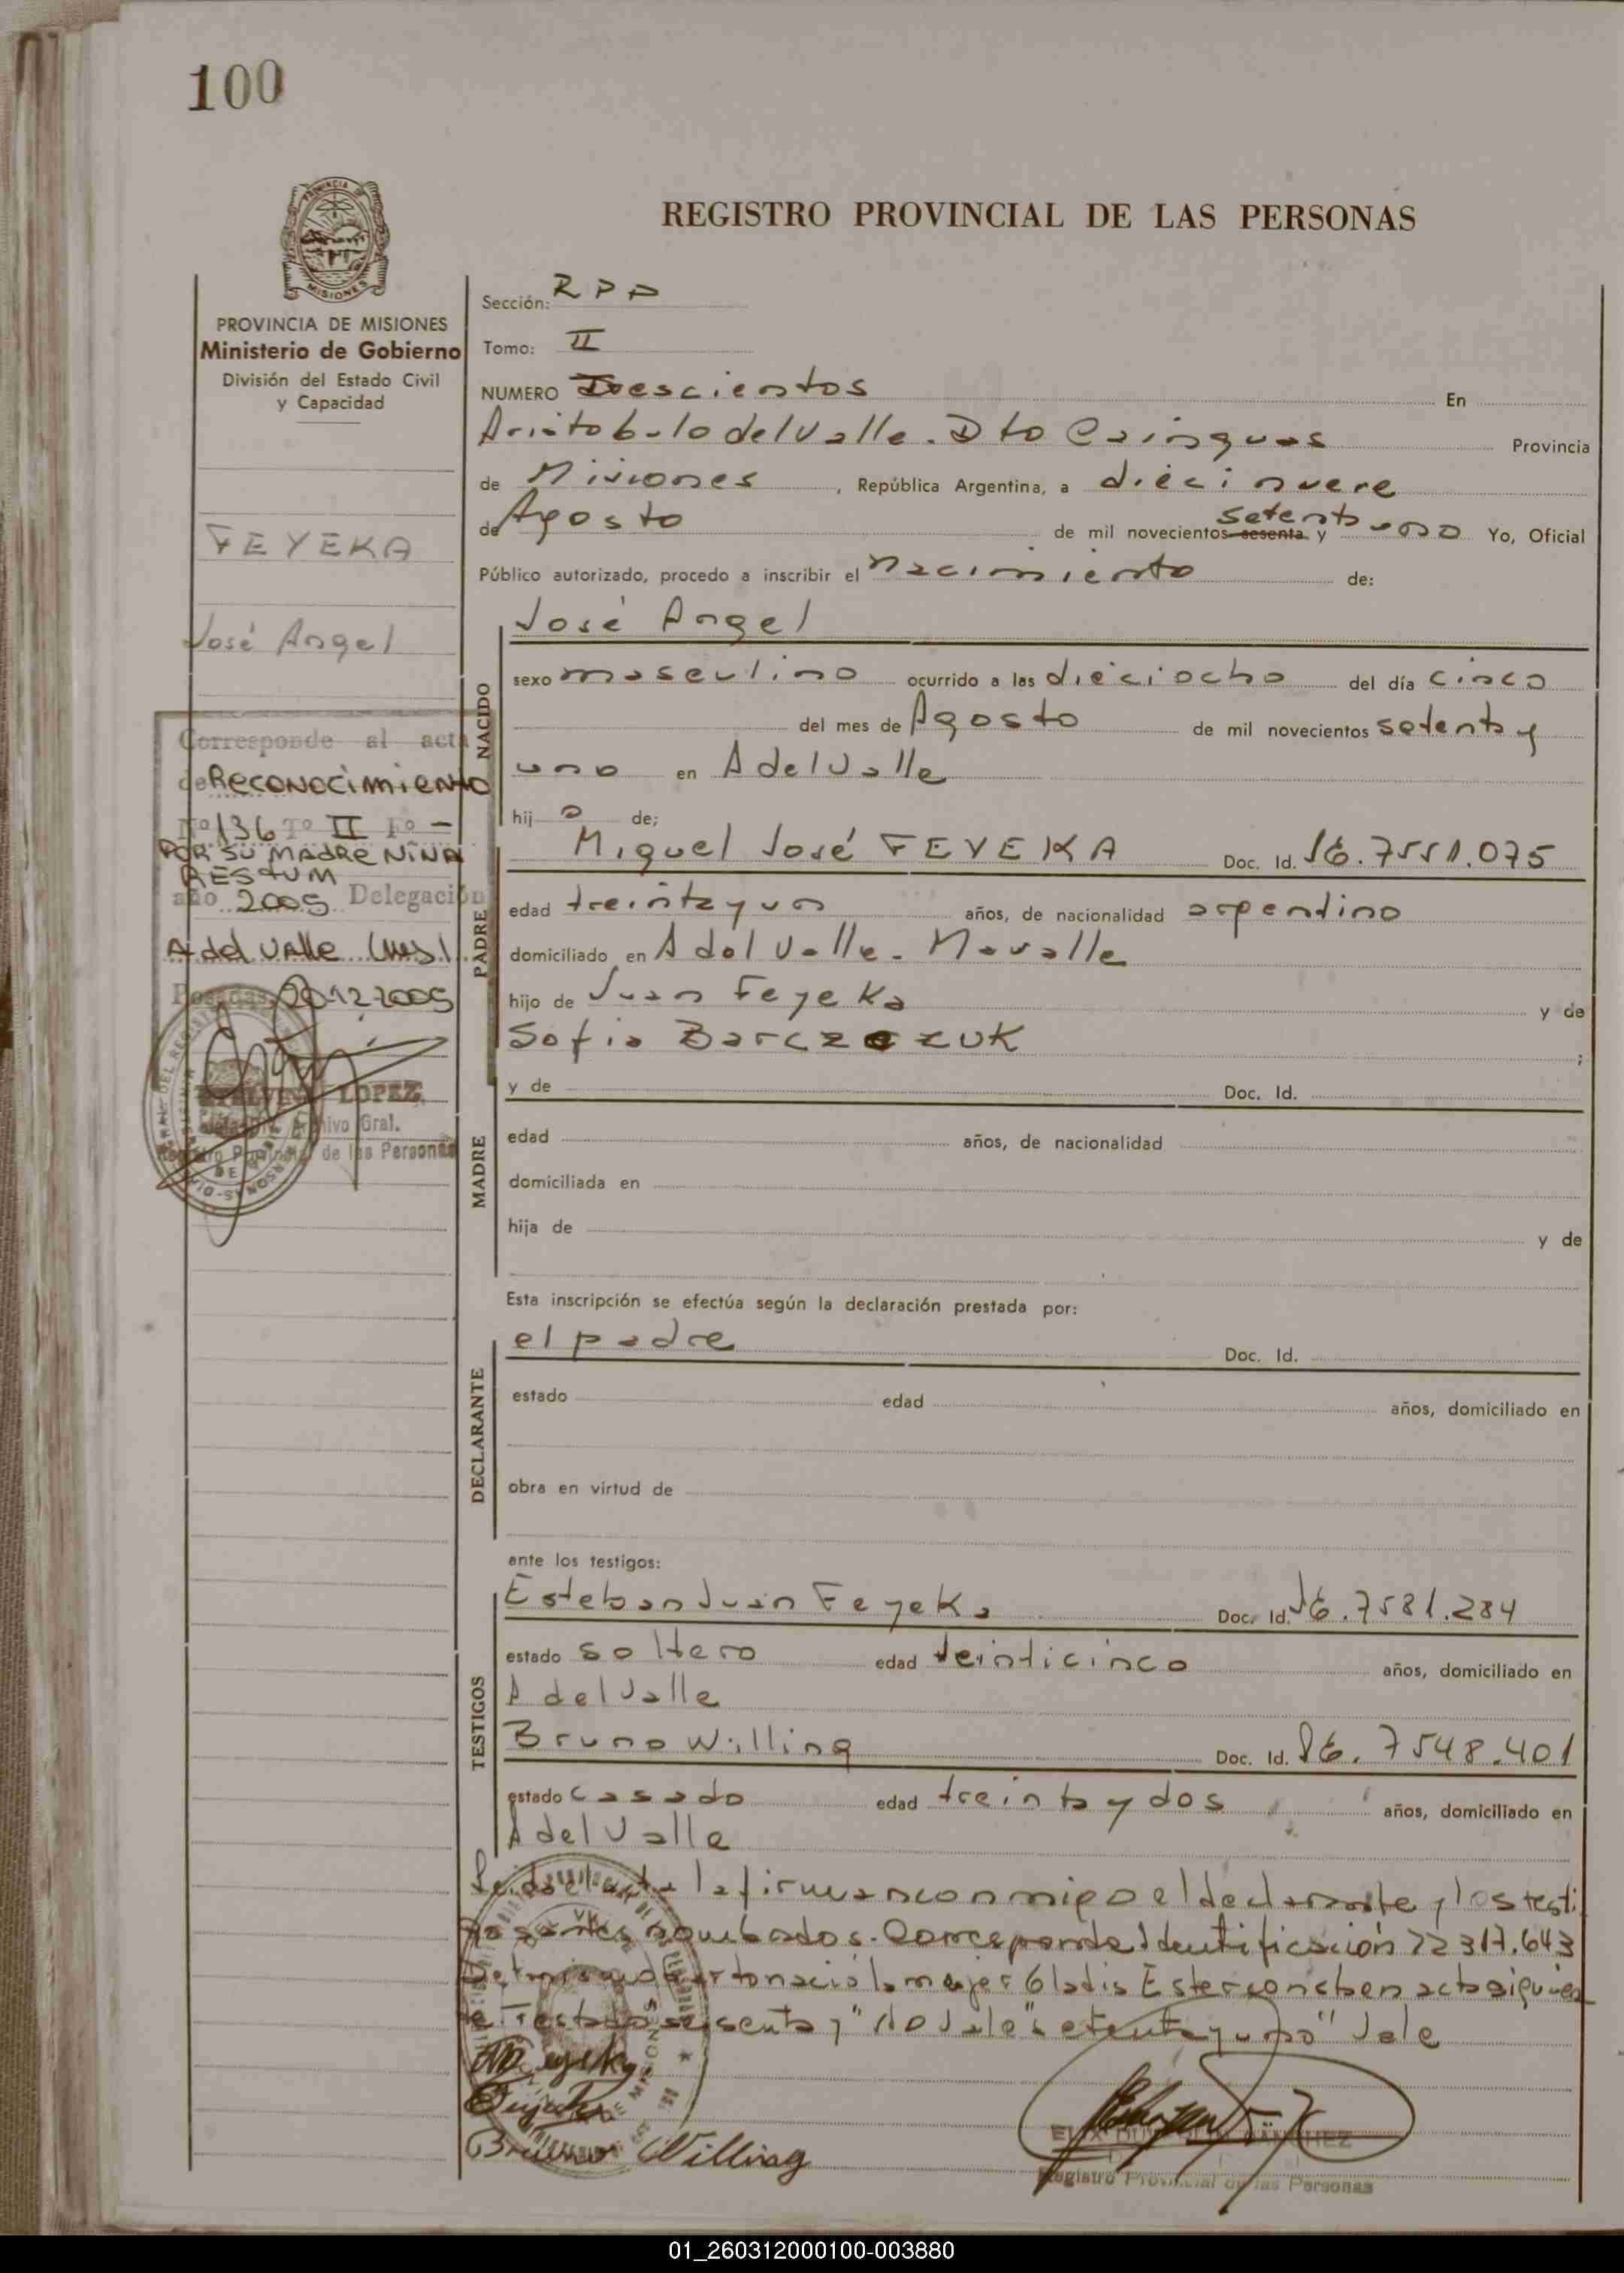 100
REGISTRO PROVINCIAL DE LAS PERSONAS
PROVINCIA DE MISIONES
MISIONES
PROVINCIA DE MISIONES
Ministerio de Gobierno
División del Estado Civil
y Capacidad
FEYEKA
José Angel
Corresponde al acta
de Reconocimiento
Nº 136 Tº II Fº -
POR SU MADRE NINA
RESTUM
año 2005 Delegación
A del Valle (Mis).
Posadas, 20.12.2005
LOPEZ
Archivo Gral.
Registro Provincial de las Personas
Sección: RPP
Tomo: II
NUMERO Doescientos En
Aristobulo del Valle. Dto Cainguas Provincia
de Misiones, República Argentina, a diecinueve
de Agosto de mil novecientos sesenta setenta y uno Yo, Oficial
Público autorizado, procedo a inscribir el nacimiento de:
NACIDO
José Angel
sexo masculino ocurrido a las dieciocho del día cinco
del mes de Agosto de mil novecientos setenta y
uno en A del Valle
hij o de;
PADRE
Miguel José FEYEKA Doc. Id. 7551.075
edad treinta y un años, de nacionalidad argentino
domiciliado en A del Valle -
hijo de Juan Feyeka y de
Sofia Barczczuk ;
MADRE
y de Doc. Id.
edad años, de nacionalidad
domiciliada en
hija de y de
Esta inscripción se efectúa según la declaración prestada por:
DECLARANTE
el padre Doc. Id.
estado edad años, domiciliado en
obra en virtud de
ante los testigos:
TESTIGOS
Esteban Juan Feyeka Doc. Id. 7581.284
estado soltero edad veinticinco años, domiciliado en
A del Valle
Bruno Willing Doc. Id. 7548.401
estado casado edad treinta y dos años, domiciliado en
A del Valle
Leida el acta la firman conmigo el declarante y los testi
gos antes nombrados. Corresponde Identificación 22317.643
Del mismo parto nació la mujer Gladis Ester conste en acta siguien
te Testado sesenta y "No Vale" setenta y uno" Vale
Bruno Willing
Registro Provincial de las Personas
01_260312000100-003880